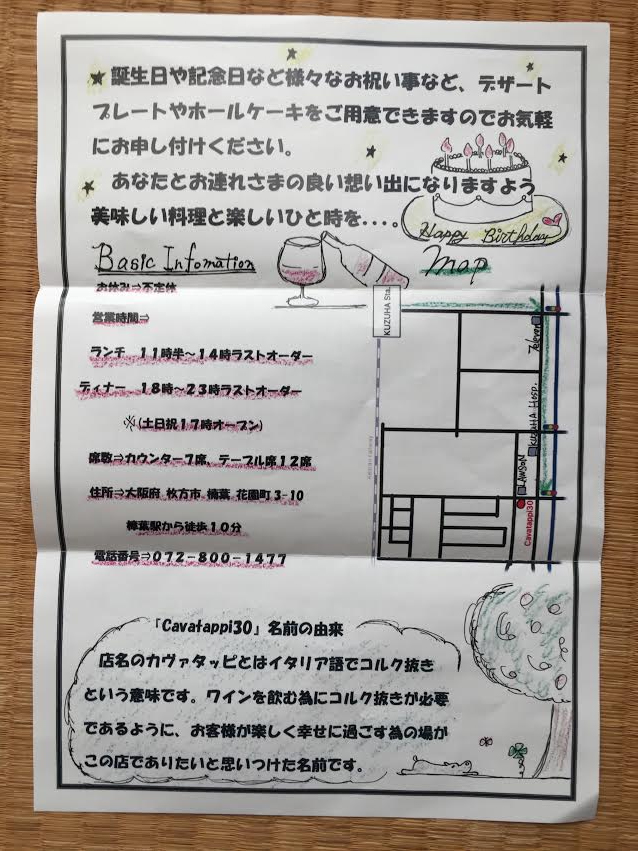 ★誕生日や記念日など様々なお祝い事など、デザート
プレートやホールケーキをご用意できますのでお気軽
にお申し付けください。
あなたとお連れさまの良い想い出になりますよう
美味しい料理と楽しいひと時を...。
Happy Birthday
Basic Infomation
map
お休み⇒不定休
営業時間⇒
ランチ 11時半～14時ラストオーダー
ディナー 18時～23時ラストオーダー
※(土日祝17時オープン)
席数⇒カウンター7席、テーブル席12席
住所⇒大阪府 枚方市 楠葉 花園町3-10
樟葉駅から徒歩10分
電話番号⇒072-800-1477
KUZUHA Sta.
7eleven
KUZUHA Hosp.
LAWSON
Cavatappi30
「Cavatappi30」名前の由来
店名のカヴァタッピとはイタリア語でコルク抜き
という意味です。ワインを飲む為にコルク抜きが必要
であるように、お客様が楽しく幸せに過ごす為の場が
この店でありたいと思いつけた名前です。